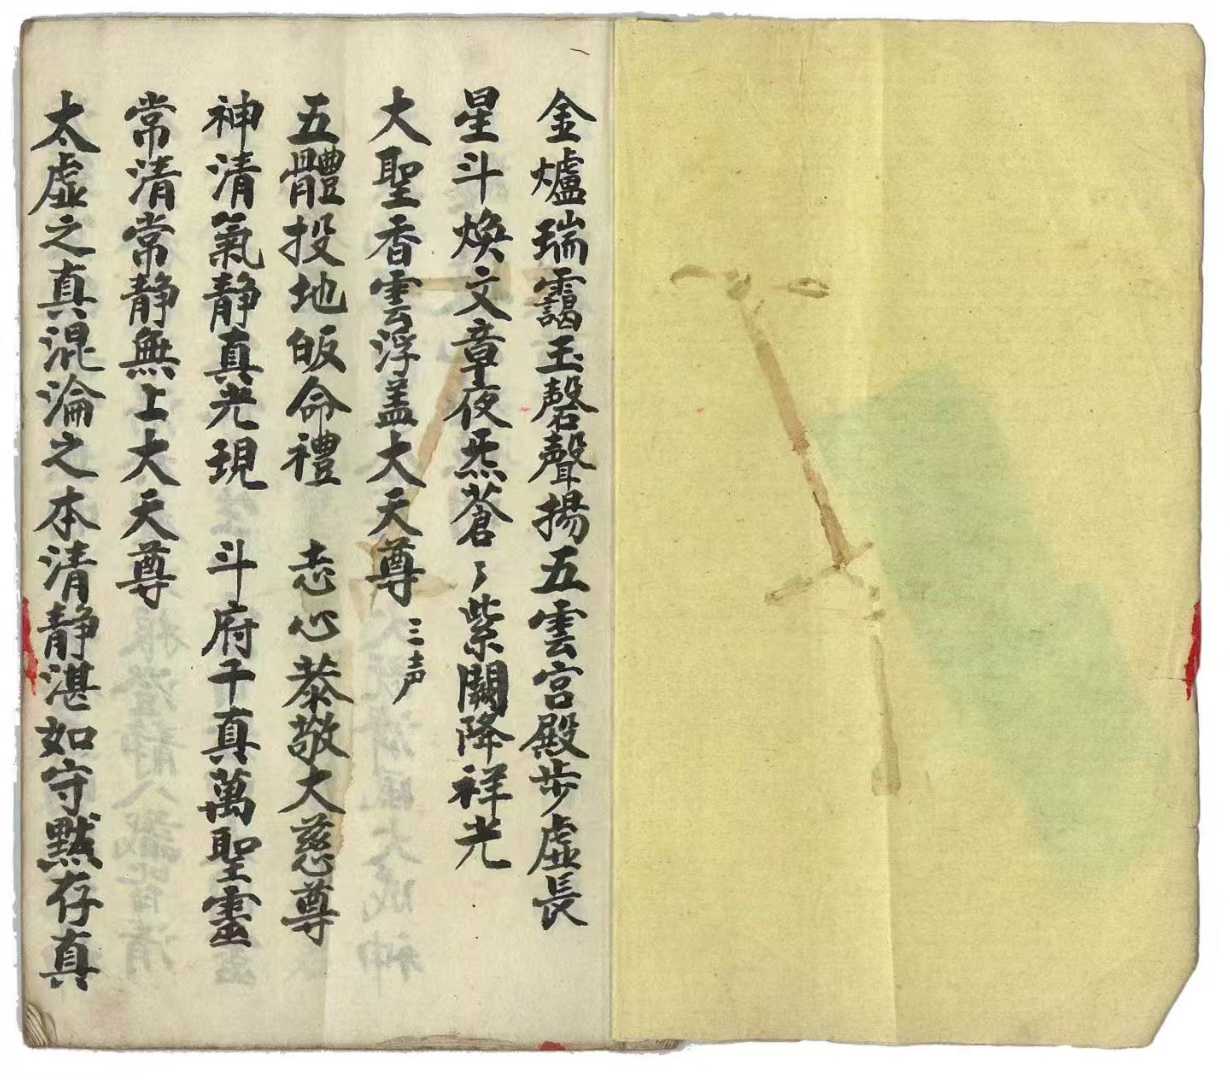 金爐瑞靄玉磬聲揚五雲宮殿步虛長
星斗煥文章夜炁蒼〻紫闕降祥光
大聖香雲浮盖大天尊 三声
五體投地皈命禮 志心㳟敬大慈尊
神清氣静真光現 斗府千真萬聖靈
常清常静無上大天尊
太虛之真混淪之本清静湛如守黙存真